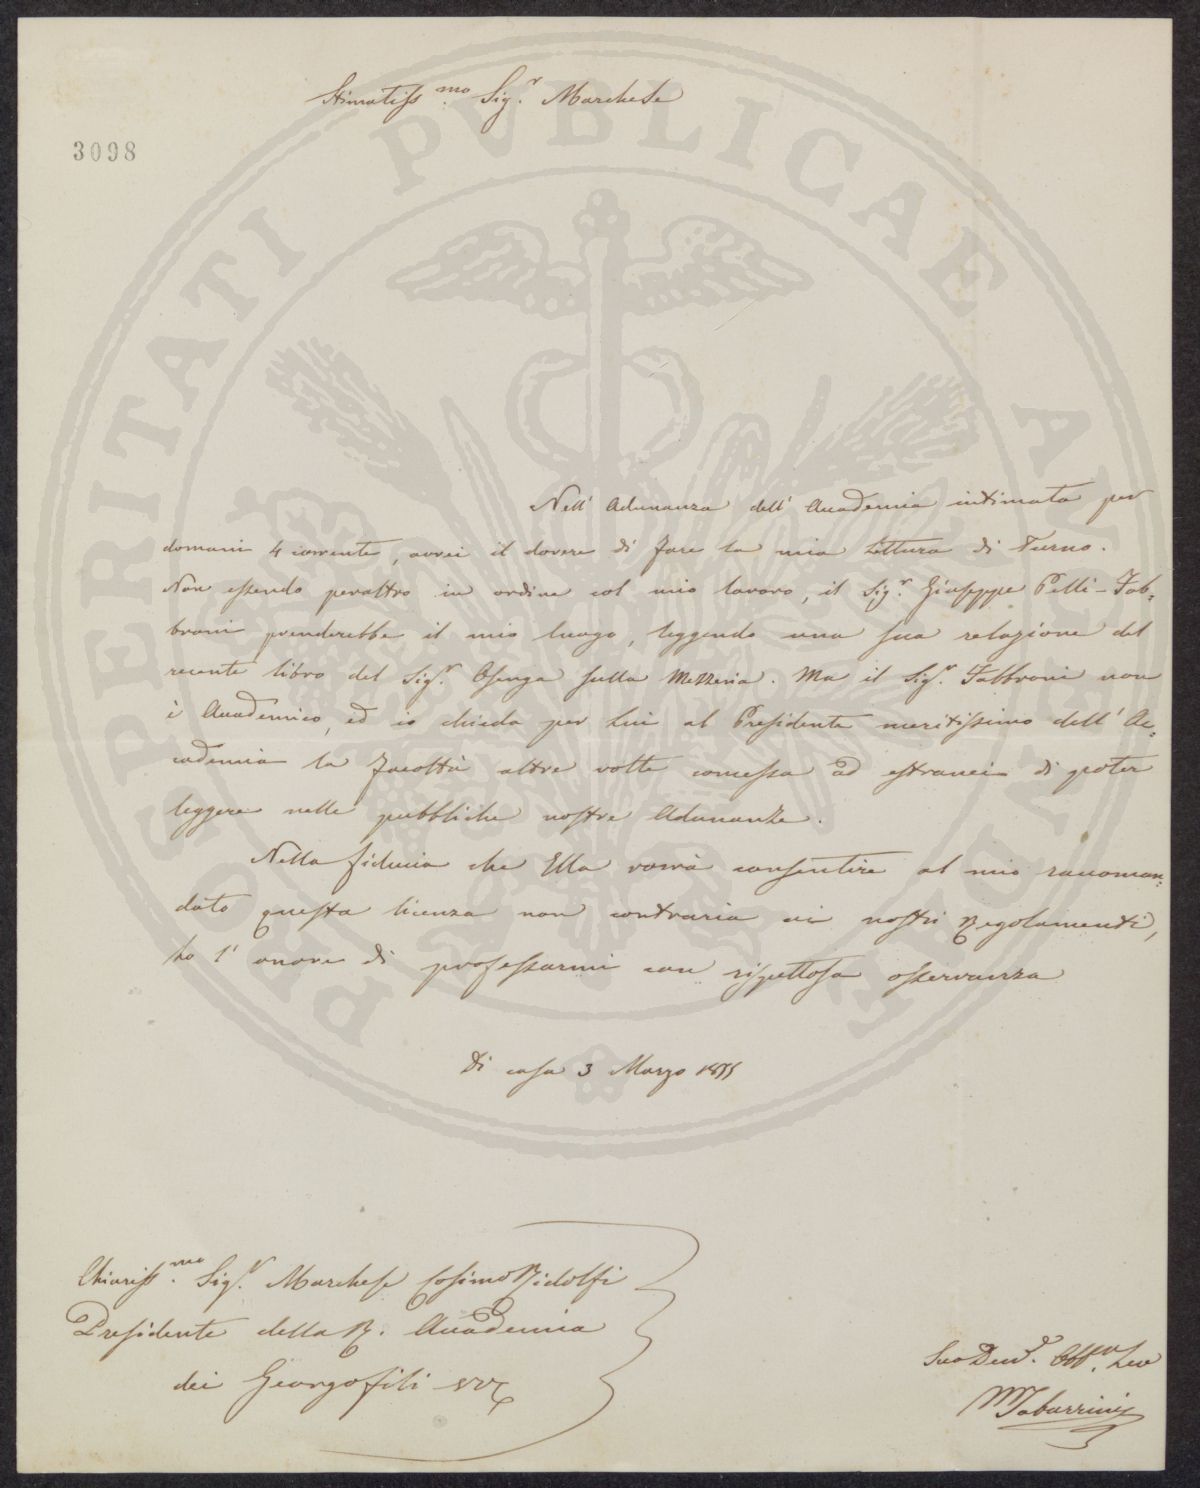 Stimatiss.mo Sig.r Marchese
3098
Nell' Adunanza dell' Accademia intimata per
domani 4 corrente, avrei il dovere di fare la mia Lettura di Turno.
Non essendo peraltro in ordine col mio lavoro, il Sig.r Giuseppe Pelli-Fab=
broni prenderebbe il mio luogo, leggendo una sua relazione del
recente libro del Sig.r Asenga sulla Mezzeria. Ma il Sig.r Fabbroni non
è Accademico, ed io chiedo per Lui al Presidente meritissimo dell' Ac=
cademia la facoltà altre volte concessa ad estranei di poter
leggere nelle pubbliche nostre Adunanze.
Nella fiducia che Ella vorrà consentire al mio raccoman=
dato questa licenza non contraria ai nostri Regolamenti,
ho l' onore di professarmi con rispettosa osservanza
Di casa 3 Marzo 1855
Chiariss.mo Sig.r Marchese Cosimo Ridolfi
Presidente della R. Accademia
dei Georgofili
Suo Dev.o Obb.mo Serv
M Tabarrini
PROSPERITATI PVBLICAE AVGENDAE